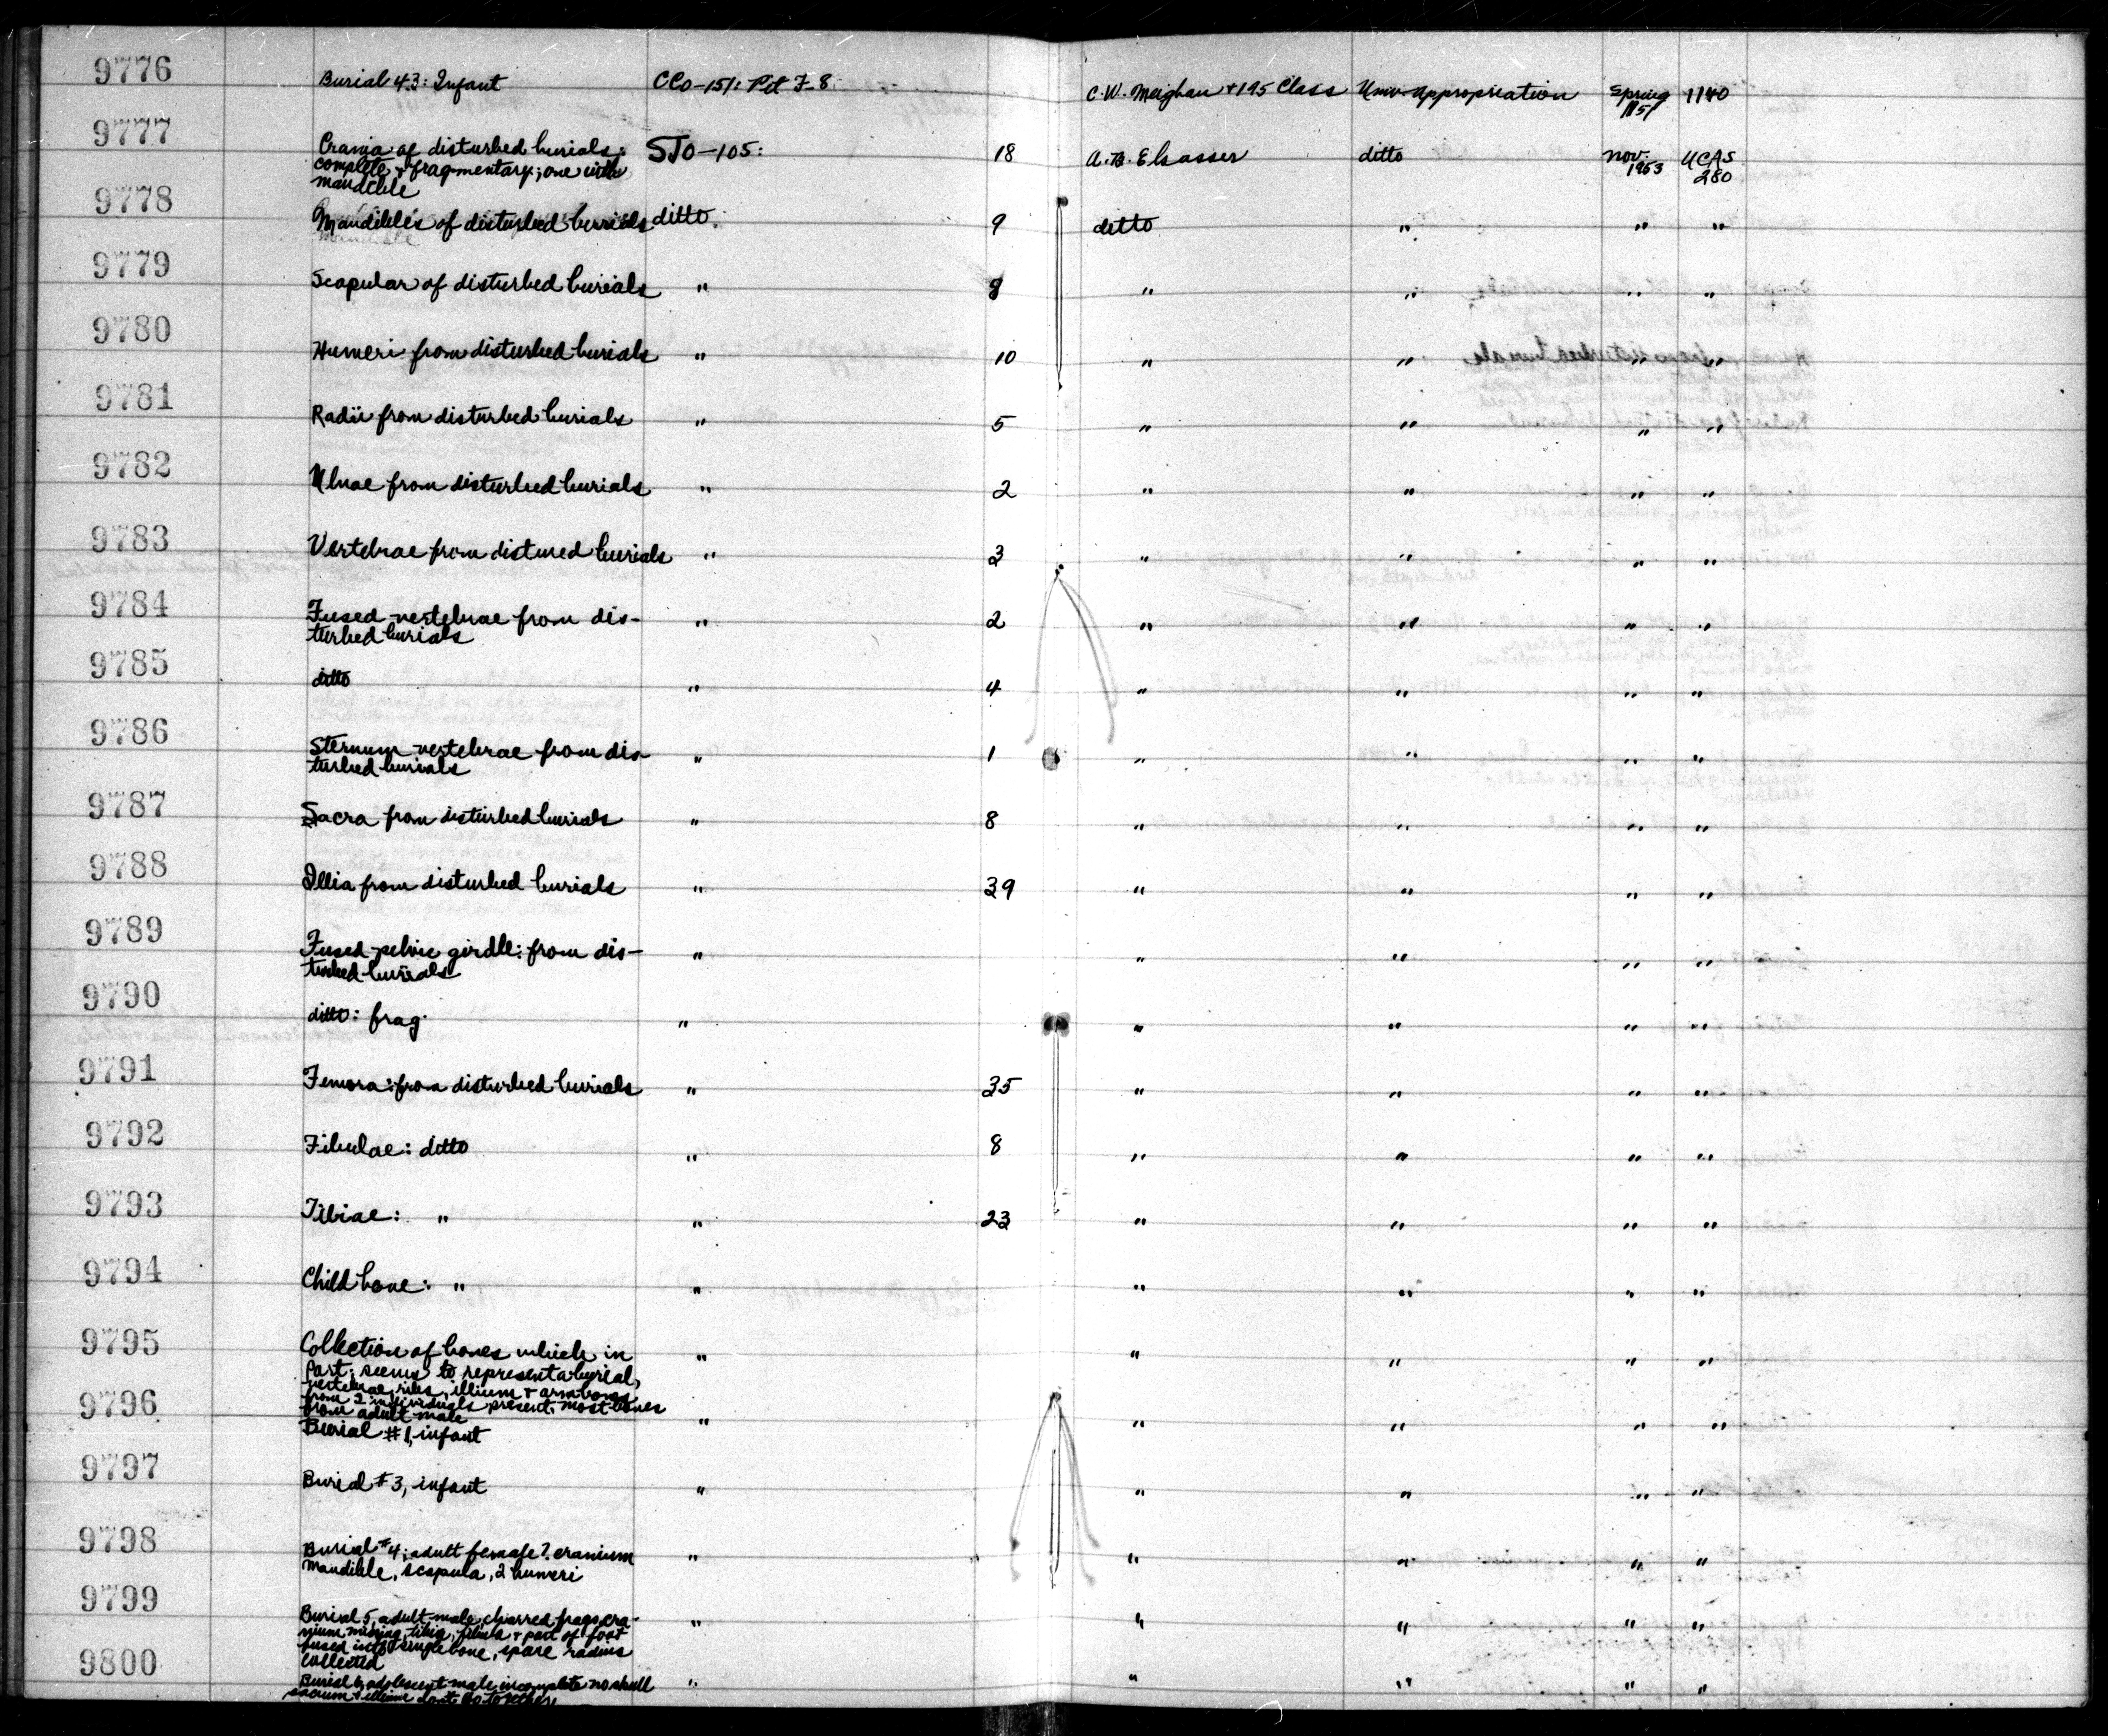 9776 Burial 43: Infant CCo-151: Pit F-8 C.W. Meighan + 195 Class Univ. Appropriation Spring 1951 1140
9777 Crania of disturbed burials: SJo-105: 18 A.B. Elsasser ditto Nov. 1953 UCAS 280
complete + fragmentary; one with
mandible
9778 Mandibles of disturbed burials ditto. 9 ditto " " "
9779 Scapular of disturbed burials " 8 " " " "
9780 Humeri from disturbed burials " 10 " " " "
9781 Radii from disturbed burials " 5 " " " "
9782 Ulnae from disturbed burials " 2 " " " "
9783 Vertebrae from distured burials " 3 " " " "
9784 Fused vertebrae from dis- " 2 " " " "
turbed burials
9785 ditto " 4 " " " "
9786 Sternum vertebrae from dis- " 1 " " " "
turbed burials
9787 Sacra from disturbed burials " 8 " " " "
9788 Illia from disturbed burials " 39 " " " "
9789 Fused pelvic girdle: from dis- " " " " "
turbed burials
9790 ditto: frag. " " " " "
9791 Femora: from disturbed burials " 35 " " " "
9792 Fibulae: ditto " 8 " " " "
9793 Tibiae: " " 23 " " " "
9794 Child bone: " " " " " "
9795 Collection of bones which in " " " " "
part seems to represent a burial,
vertebrae, ribs, illium + arm bones
from 2 individuals present. most bones
from adult male
9796 Burial #1, infant " " " " "
9797 Burial #3, infant " " " " "
9798 Burial #4; adult female?. cranium " " " " "
mandible, scapula, 2 humeri
9799 Burial 5, adult male, charred frags cra- " " " " "
nium missing, tibia, fibula + part of foot
fused into single bone, spare radius
collected
9800 Burial 6 adolescent male incomplete no skull " " " " "
sacrum + illium don't go together